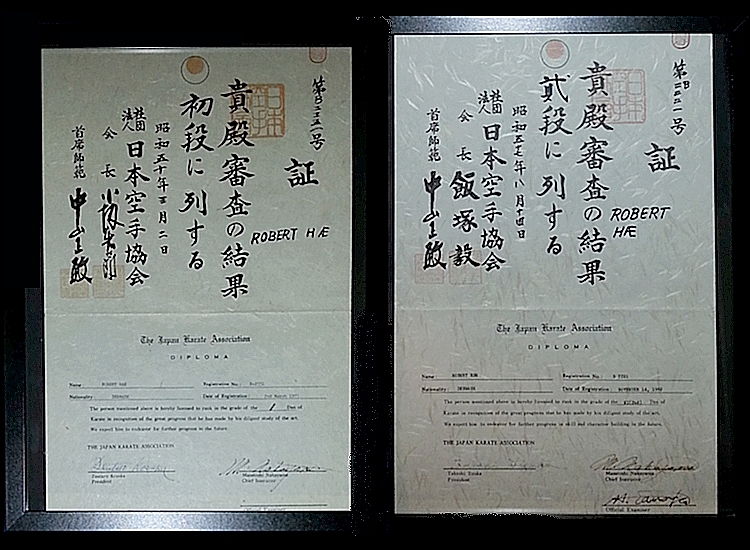 第B二二五一号
証
ROBERT HÆ
貴殿審査の結果
初段に列する
昭和五十年三月二日
社団
法人
日本空手協会
会長
首席師範
中山正敏
The Japan Karate Association
DIPLOMA
Name
Registration No.:
Nationality:
DENMARK
Date of Registration:
2nd March 1975
The person mentioned above is hereby licensed to rank in the grade of the 1 Dan of
Karate in recognition of the great progress that he has made by his diligent study of the art.
We expect him to endeavor for further progress in the future.
THE JAPAN KARATE ASSOCIATION
President
Masatoshi Nakayama
Chief Instructor
証
ROBERT
HÆ
貴殿審査の結果
弐段に列する
社団
法人
日本空手協会
会長
飯塚毅
首席師範
中山正敏
The Japan Karate Association
DIPLOMA
Name
ROBERT
Registration No.:
Nationality:
DENMARK
Date of Registration:
The person mentioned above is hereby licensed to rank in the grade of the Dan of
Karate in recognition of the great progress that he has made by his diligent study of the art.
We expect him to endeavor for further progress in skill and character building in the future.
THE JAPAN KARATE ASSOCIATION
President
Masatoshi Nakayama
Chief Instructor
Official Examiner